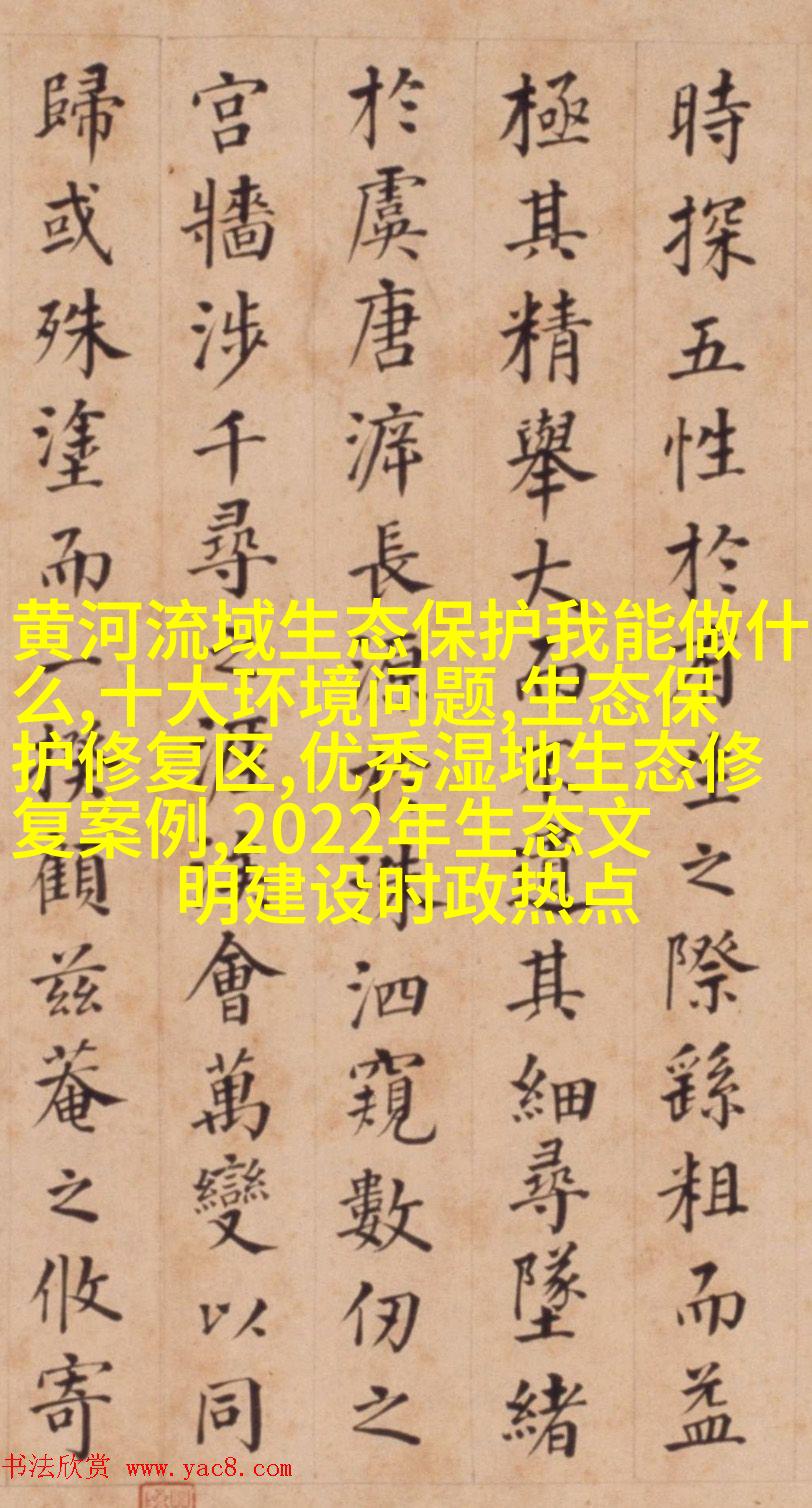 時探五性於之際繇粗而益
極其精舉大而不遺其細尋墜緒
於虞唐長源於洙泗窺數仞之
宮牆涉千尋之涯會萬變以同
歸或殊塗而一揆顧茲菴之攸寄
黄河流域生态保护我能做什
么,十大环境问题,生态保
护修复区,优秀湿地生态修
复案例,2022年生态文
明建设时政热点
书法欣赏 www.yac8.com